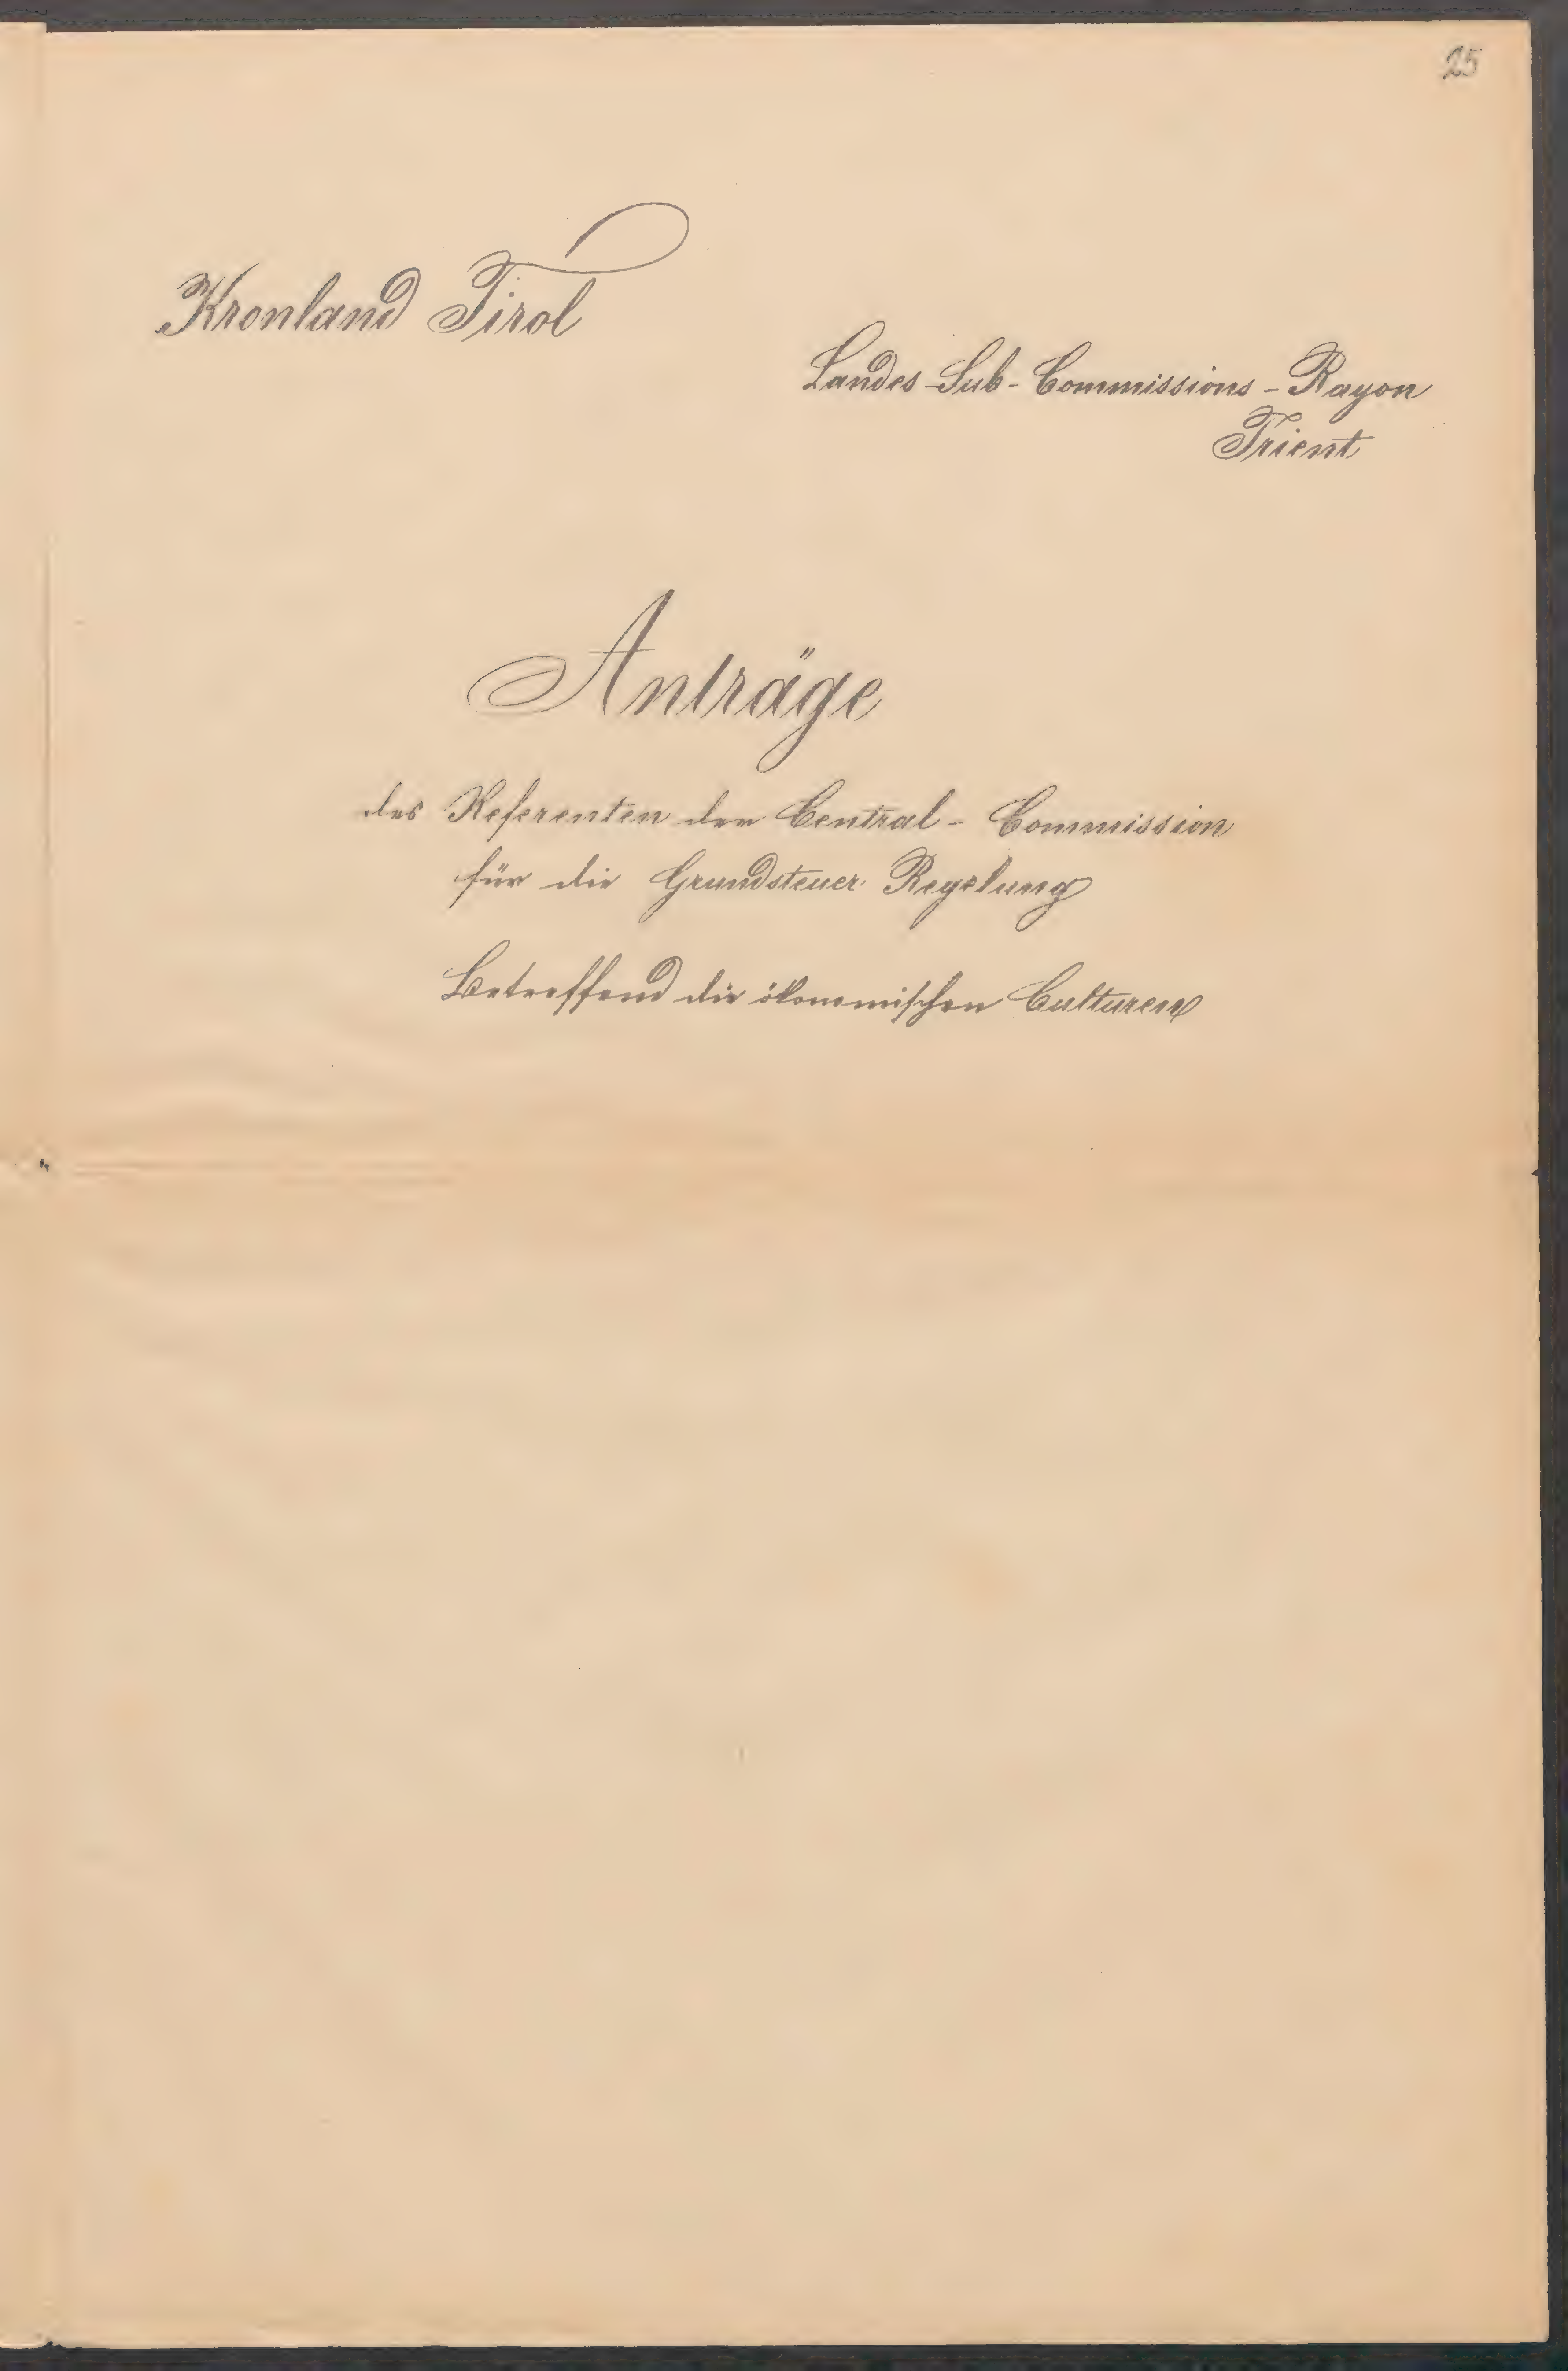 25
Kronland Tirol
Landes-Sub-Commissions-Rayon
Trient
Anträge
des Referenten der Central-Commission
für die Grundsteuer Regelung
Betreffend die ökonomischen Culturen